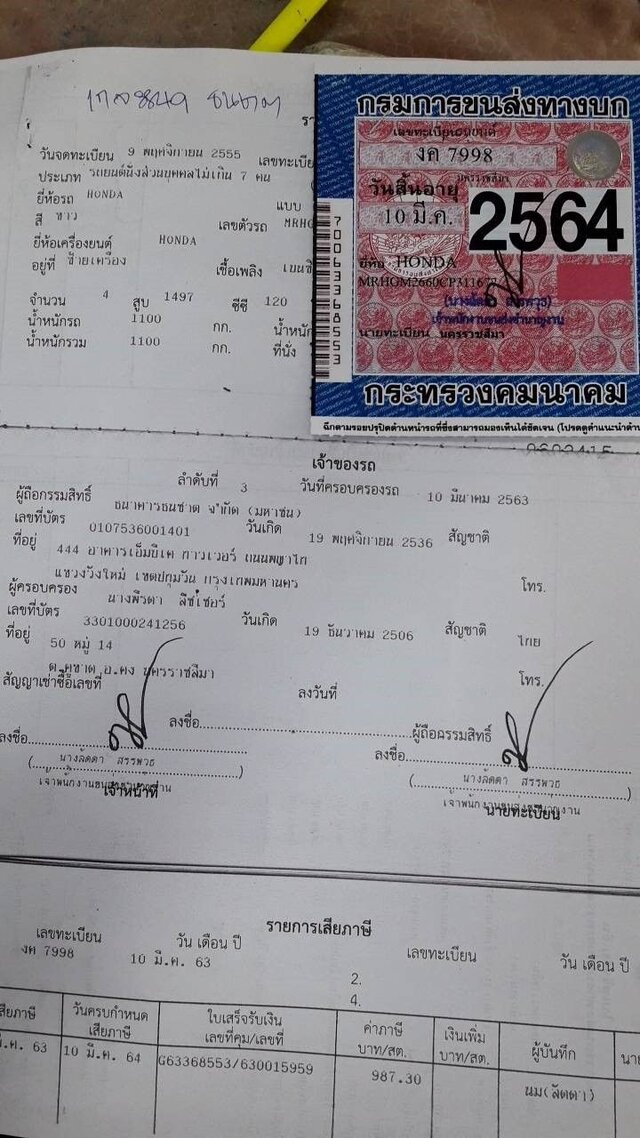 วันจดทะเบียน 9 พฤศจิกายน 2555 เลขทะเบีย
ประเภท รถยนต์นั่งส่วนบุคคลไม่เกิน 7 คน
ยี่ห้อรถ HONDA แบบ
สี ขาว เลขตัวรถ MRHO
ยี่ห้อเครื่องยนต์ HONDA
อยู่ที่ ซ้ายเครื่อง เชื้อเพลิง เบนซิ
จำนวน 4 สูบ 1497 ซีซี 120
น้ำหนักรถ 1100 กก. น้ำหนัก
น้ำหนักรวม 1100 กก. ที่นั่ง
กรมการขนส่งทางบก
เลขทะเบียนรถยนต์
งค 7998
นครราชสีมา
วันสิ้นอายุ
10 มี.ค. 2564
ยี่ห้อ HONDA
(นางลัดดา สรรพวุธ)
เจ้าพนักงานขนส่งชำนาญงาน
นายทะเบียน นครราชสีมา
7006336855
กระทรวงคมนาคม
ฉีกตามรอยปรุปิดด้านหน้ารถที่ซึ่งสามารถมองเห็นได้ชัดเจน (โปรดดูคำแนะนำด้าน
เจ้าของรถ
ลำดับที่ 3 วันที่ครอบครองรถ 10 มีนาคม 2563
ผู้ถือกรรมสิทธิ์ ธนาคารธนชาต จำกัด (มหาชน)
เลขที่บัตร 0107536001401 วันเกิด 19 พฤศจิกายน 2536 สัญชาติ
ที่อยู่ 444 อาคารเอ็มบีเค ทาวเวอร์ ถนนพญาไท
แขวงวังใหม่ เขตปทุมวัน กรุงเทพมหานคร โทร.
ผู้ครอบครอง นางพีรดา ลิชเชอร์
เลขที่บัตร 3301000241256 วันเกิด 19 ธันวาคม 2506 สัญชาติ ไทย
ที่อยู่ 50 หมู่ 14
ต.ขาด อ.คง นครราชสีมา โทร.
สัญญาเช่าซื้อเลขที่ ลงวันที่
ลงชื่อ ผู้ถือกรรมสิทธิ์
ลงชื่อ ลงชื่อ
นางลัดดา สรรพวุธ นางลัดดา สรรพวุธ
เจ้าพนักงานขนส่งชำนาญงาน เจ้าพนักงานขนส่งชำนาญงาน
เจ้าหน้าที่ นายทะเบียน
รายการเสียภาษี
เลขทะเบียน วัน เดือน ปี เลขทะเบียน วัน เดือน ปี
งค 7998 10 มี.ค. 63
2.
4.
เสียภาษี วันครบกำหนดเสียภาษี ใบเสร็จรับเงิน เลขที่คุม/เลขที่ ค่าภาษี บาท/สต. เงินเพิ่ม บาท/สต. ผู้บันทึก นาย
มี.ค. 63 10 มี.ค. 64 G63368553/630015959 987.30 นม(ลัดดา)